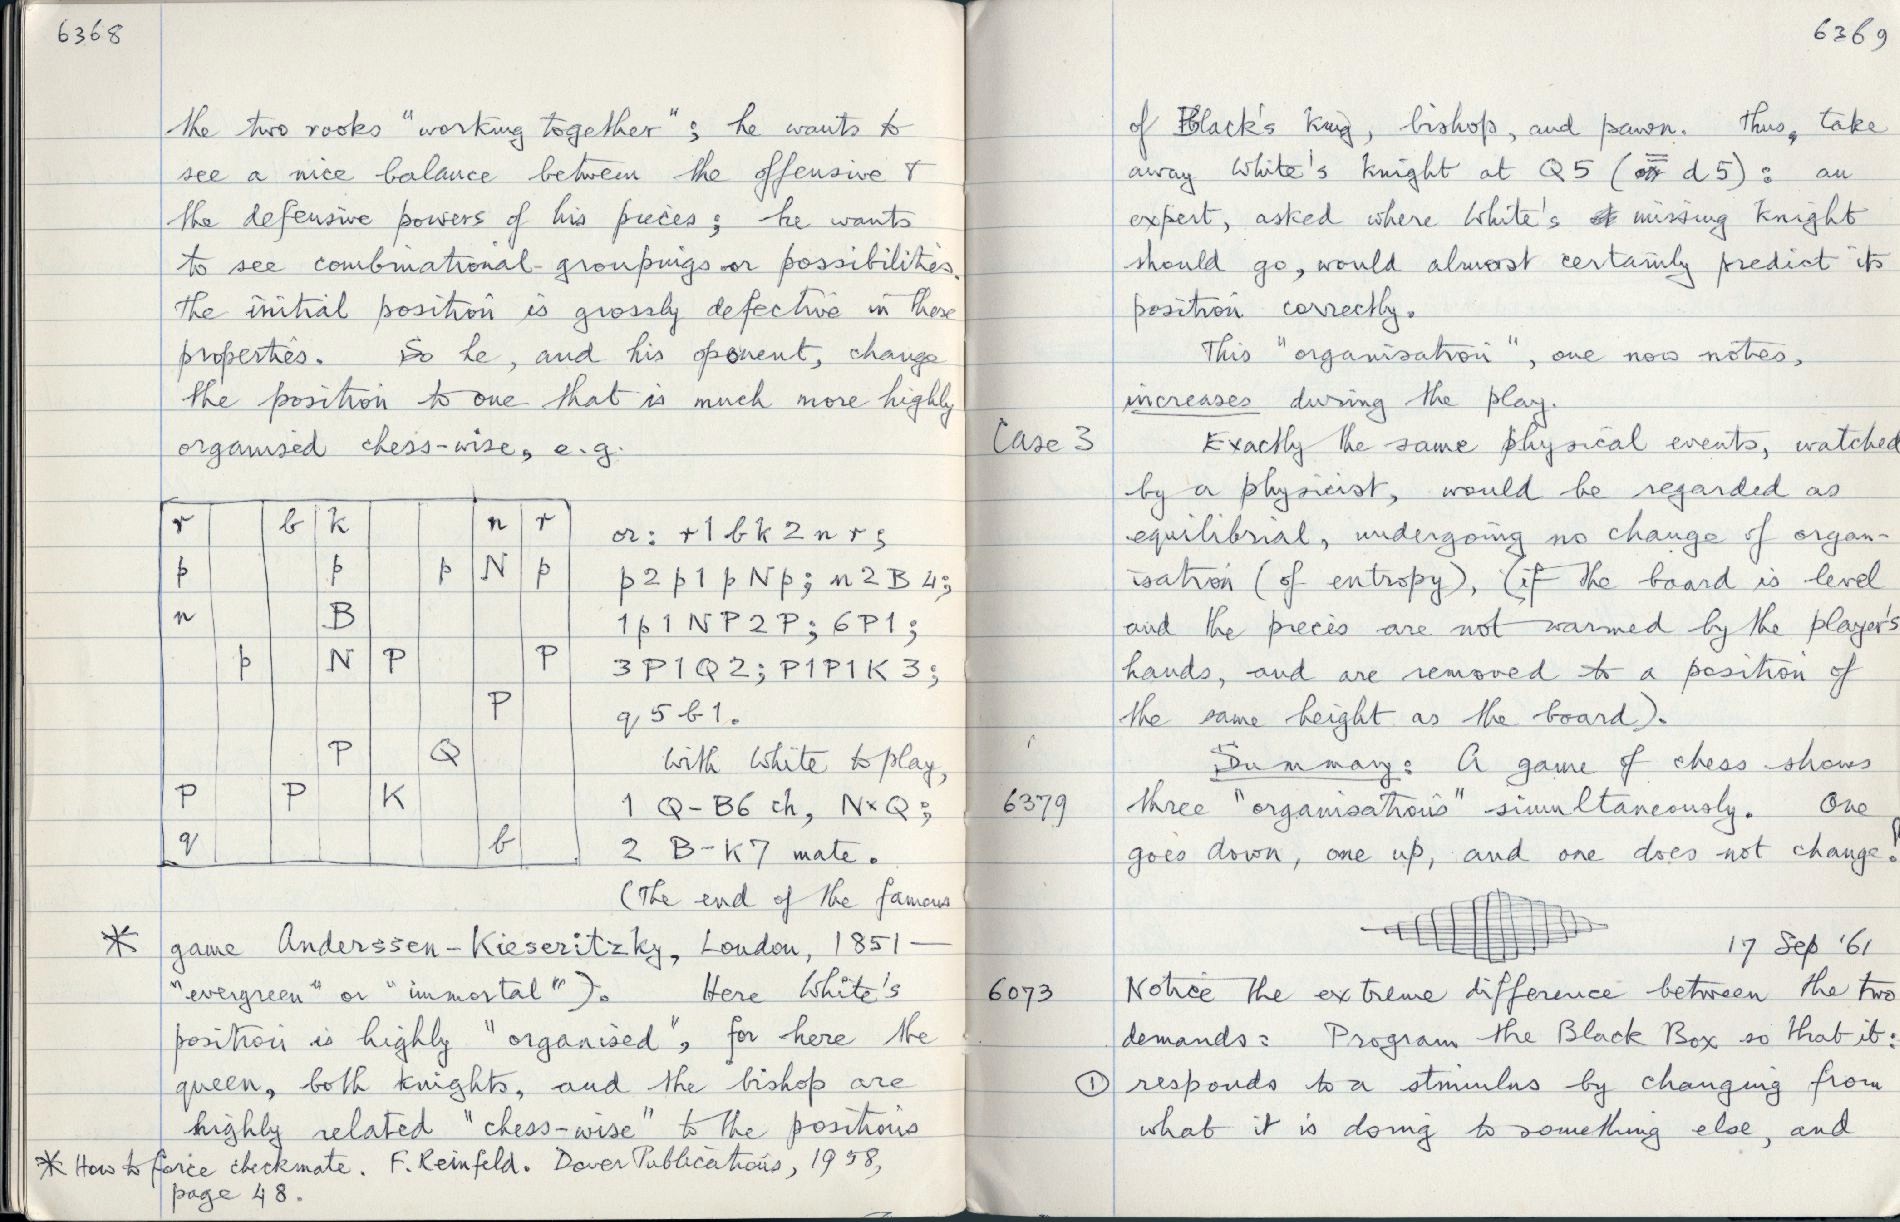 6368
the two rooks "working together"; he wants to
see a nice balance between the offensive &
the defensive powers of his pieces; he wants
to see combinational groupings or possibilities.
The initial position is grossly defective in these
properties. So he, and his oponent, change
the position to one that is much more highly
organised chess-wise, e.g.
r b k n r
p p p N p
n B
p N P P
P
P Q
P P K
q b
or: r1bk2nr;
p2p1pNp; n2B4;
1p1NP2P; 6P1;
3P1Q2; P1P1K3;
q5b1.
With White to play,
1 Q-B6 ch, N×Q;
2 B-K7 mate.
(The end of the famous
* game Anderssen-Kieseritzky, London, 1851—
"evergreen" or "immortal"). Here White's
position is highly "organised", for here the
queen, both knights, and the bishop are
highly related "chess-wise" to the positions
* How to force checkmate. F. Reinfeld. Dover Publications, 1958,
page 48.
6369
of Black's King, bishop, and pawn. Thus, take
away White's Knight at Q5 (= d5): an
expert, asked where White's missing Knight
should go, would almost certainly predict its
position correctly.
This "organisation", one now notes,
increases during the play.
Case 3 Exactly the same physical events, watched
by a physicist, would be regarded as
equilibrial, undergoing no change of organ-
isation (of entropy), (if the board is level
and the pieces are not warmed by the player's
hands, and are removed to a position of
the same height as the board).
Summary: A game of chess shows
6379 three "organisations" simultaneously. One
goes down, one up, and one does not change!
17 Sep '61
6073 Notice the extreme difference between the two
demands: Program the Black Box so that it:
① responds to a stimulus by changing from
what it is doing to something else, and